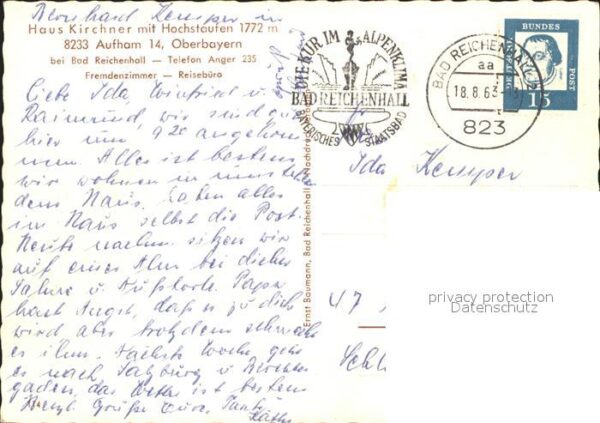 Bernhard Kemper in
Haus Kirchner mit Hochstaufen 1772 m
8233 Aufham 14, Oberbayern
bei Bad Reichenhall — Telefon Anger 235
Fremdenzimmer — Reisebüro
Liebe Ida, Winfried u.
Raimund, wir sind
hier um 9 20 angekom
men. Alles ist bestens
wir wohnen in
dem Haus, haben alles
im Haus selbst die Post
Heute nachm. sitzen wir
auf einer Alm bei dicker
Sahne u. Papa
hast Angst, daß es zu dick
wird aber trotzdem schmeckt
es ihm. Nächste Woche geht
es nach Salzburg u Berchtes
gaden, das Wetter ist bestens
Herzl. Grüße Eure Tante
Käthe
DIE KUR IM ALPENKLIMA
BAD REICHENHALL
BAYERISCHES STAATSBAD
BAD REICHENHALL 2
aa
18.8.63
823
DEUTSCHE BUNDESPOST
15
Ernst Baumann, Bad Reichenhall
Ida Kemper
47
privacy protection
Datenschutz